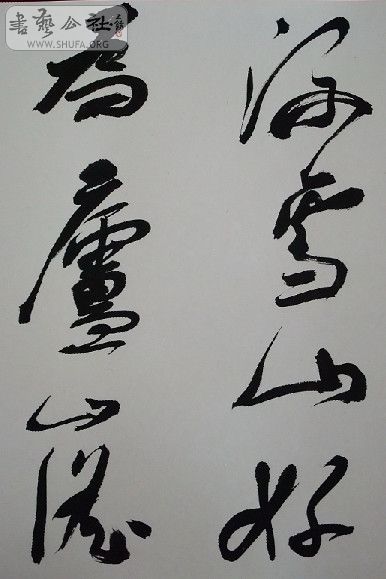 書藝公社
WWW.SHUFA.ORG
流雪山好
為廬山謠